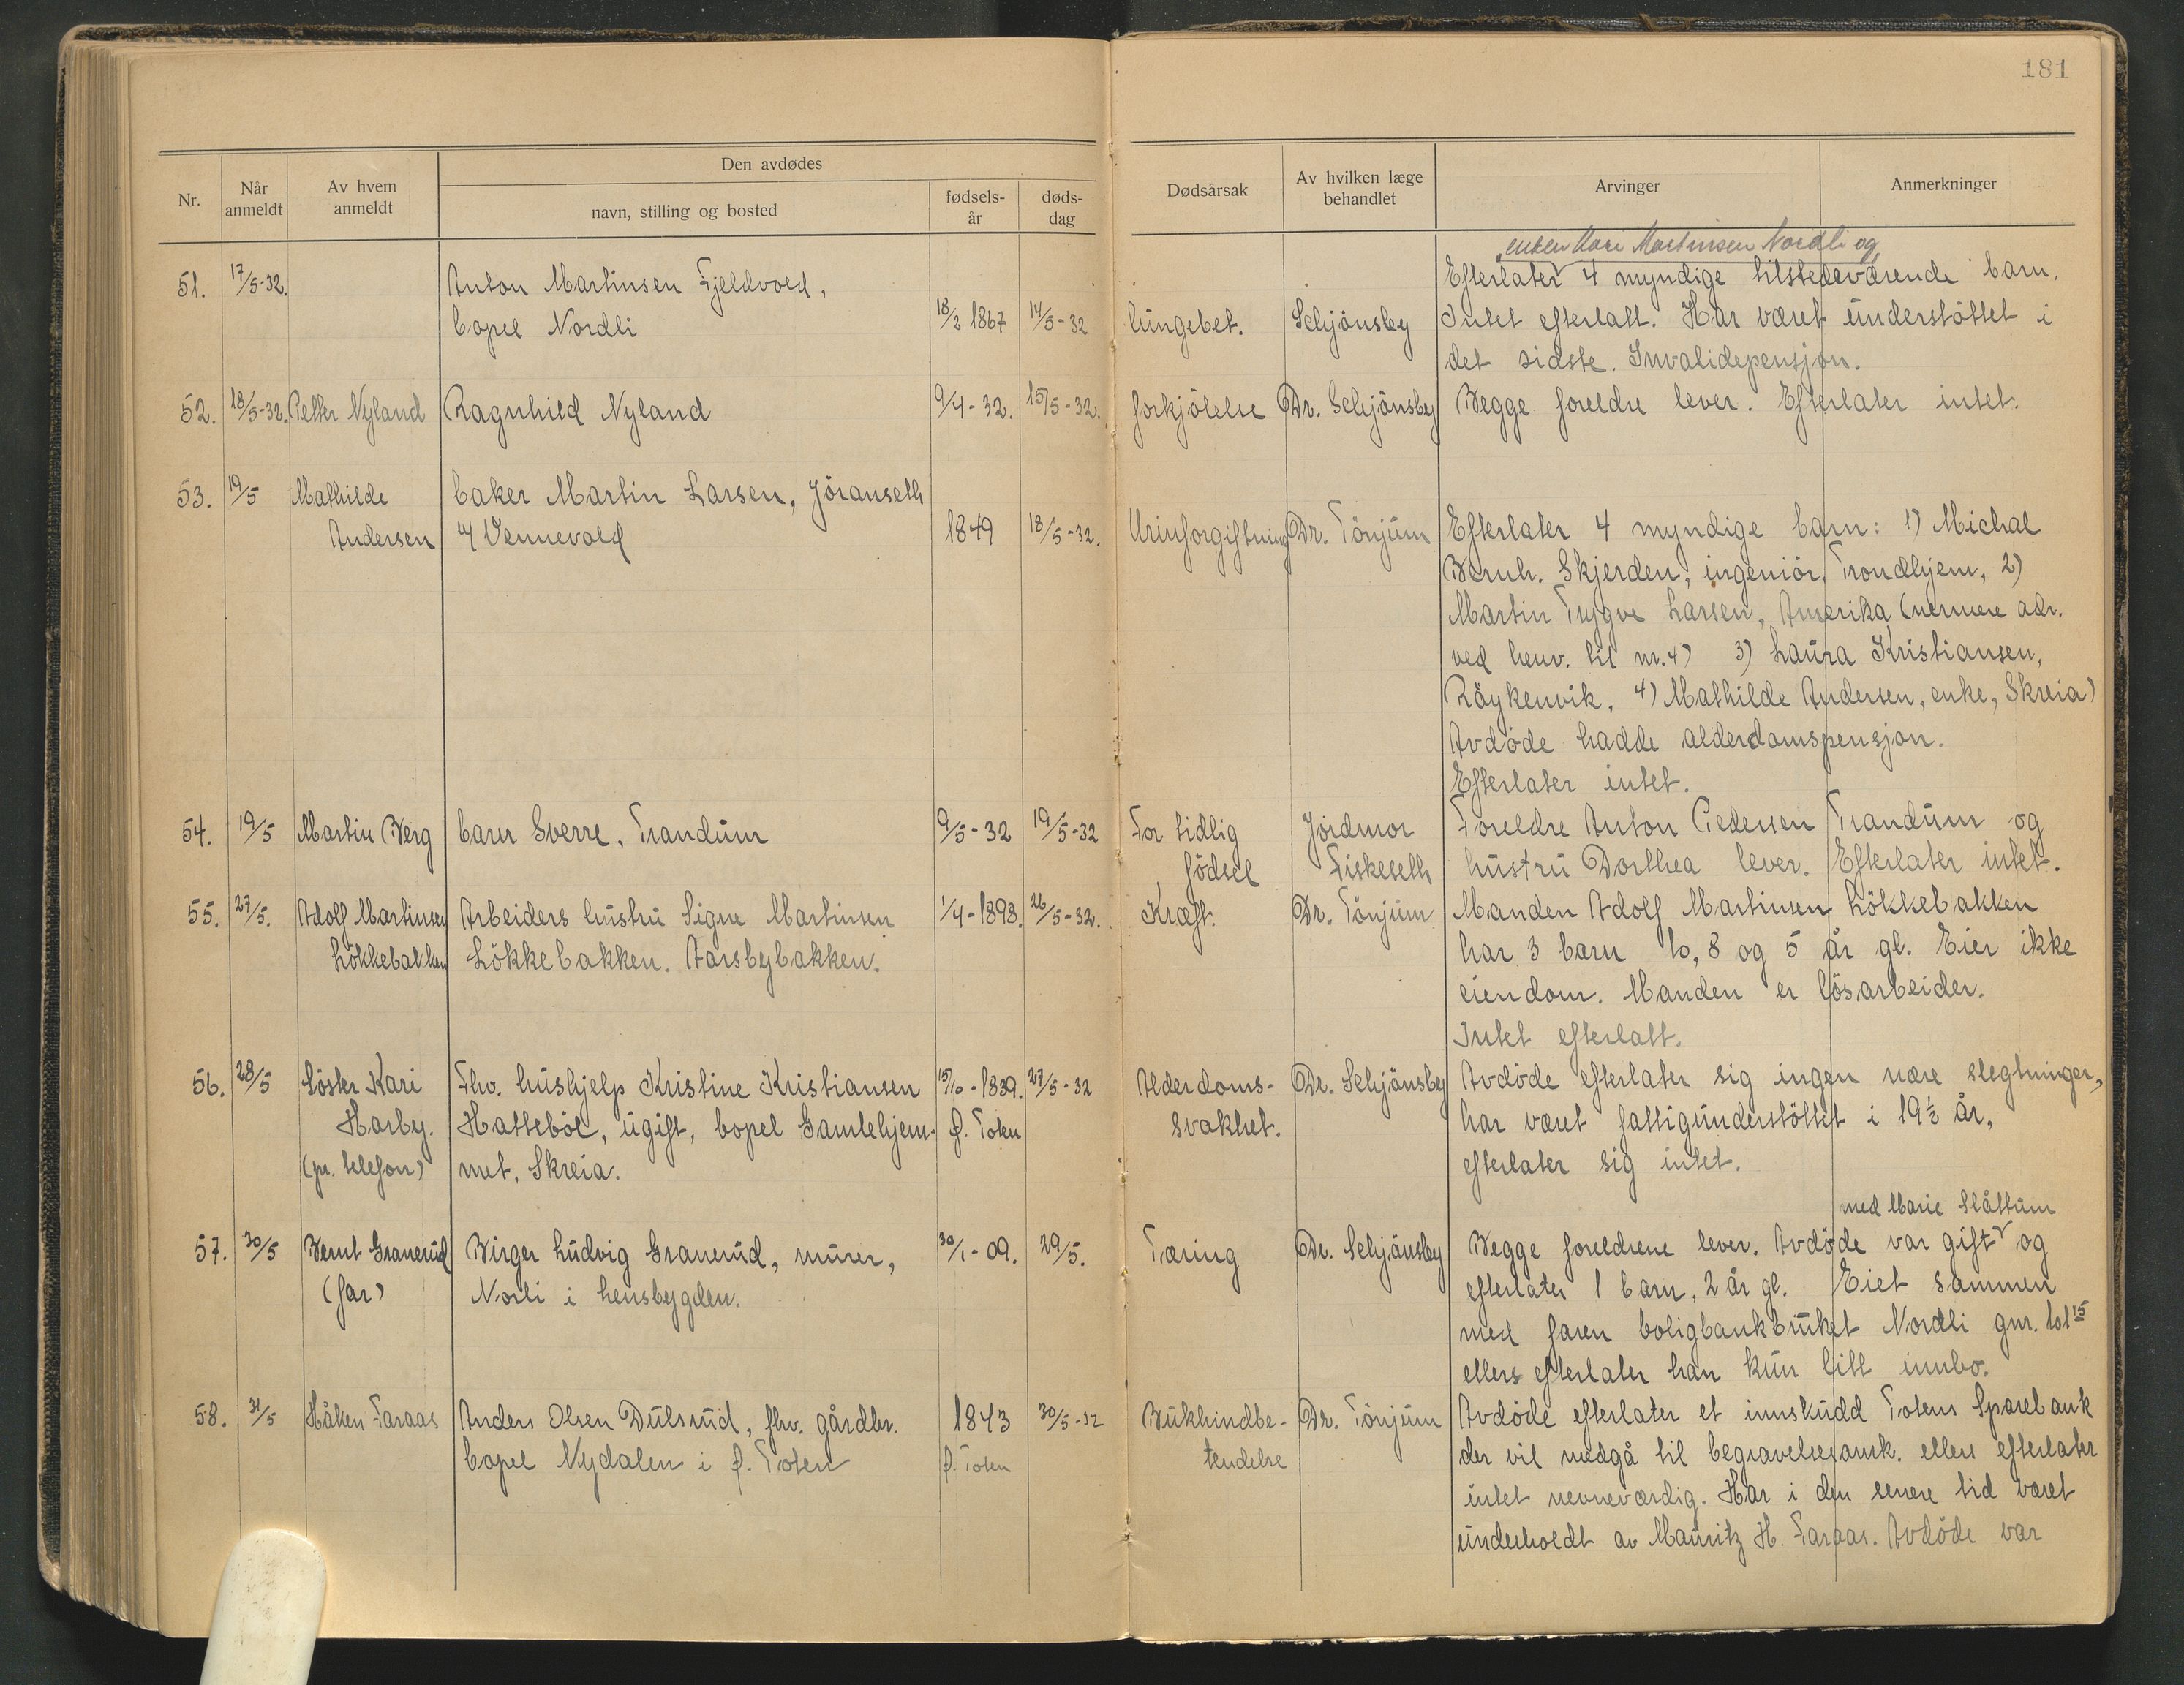 181
Nr.
Når anmeldt
Av hvem anmeldt
Den avdødes
navn, stilling og bosted
fødsels-år
døds-dag
Dødsårsak
Av hvilken læge behandlet
Arvinger
Anmerkninger
enken Kari Martinsen Nordli og
51. 17/5-32. Anton Martinsen Fjeldvold, Efterlater 4 myndige tilstedeværende barn.
bopel Nordli 18/2 1867 14/5-32 lungebet. Schjönsby Intet efterlatt. Har været understöttet i
det sidste. Invalidepensjon.
52. 18/5-32. Petter Nyland Ragnhild Nyland 9/4-32. 15/5-32. forkjölelse Dr. Schjönsby Begge foreldre lever. Efterlater intet.
53. 19/5 Mathilde baker Martin Larsen, Jöranseth
Andersen u/ Vennevold 1849 18/5-32. Urinforgiftning Dr. Tönjum Efterlater 4 myndige barn: 1) Michal
Bernh. Skjerden, ingeniör, Trondhjem, 2)
Martin Trygve Larsen, Amerika (nermere adr.
ved henv. til nr. 4) 3) Laura Kristiansen,
Röykenvik, 4) Mathilde Andersen, enke, Skreia)
Avdöde hadde alderdomspensjon.
Efterlater intet.
54. 19/5 Martin Berg barn Sverre, Trandum 9/5-32 19/5-32 For tidlig Jordmor Foreldre Anton Pedersen Trandum og
födsel Fiskeseth hustru Dorthea lever. Efterlater intet.
55. 27/5. Adolf Martinsen Arbeiders hustru Signe Martinsen 1/4-1893. 26/5-32. Kræft. Dr. Tönjum Manden Adolf Martinsen Lökkebakken
Lökkebakken Lökkebakken. Aarsbybakken. har 3 barn 10, 8 og 5 år gl. Eier ikke
eiendom. Manden er lösarbeider.
Intet efterlatt.
56. 28/5 Söster Kari Fhv. hushjelp Kristine Kristiansen 15/10-1839. 27/5-32 Alderdoms- Dr. Schjönsby Avdöde efterlater sig ingen nære slegtninger,
Harby. Hatteböl, ugift, bopel Gamlehjem- Ø. Toten svakhet. har været fattigunderstöttet i 19½ år,
(pr. telefon) met, Skreia. efterlater sig intet.
med Marie Slåttum
57. 30/5 Bernt Granerud Birger Ludvig Granerud, murer, 30/1-09. 29/5. Tæring Dr. Schjönsby Begge foreldrene lever. Avdöde var gift og
(far) Norli i Lensbygden. efterlater 1 barn, 2 år gl. Eiet sammen
med faren boligbankbruket Nordli gnr. 101 15
ellers efterlater han kun litt innbo.
58. 31/5 Håken Faraas Anders Olsen Dulsrud, fhv. gårdbr. 1843 30/5-32 Bukhindbe- Dr. Tönjum Avdöde efterlater et innskudd Totens Sparebank
bopel Nydalen i Ø. Toten Ø. Toten tendelse der vil medgå til begravelsesomk. ellers efterlater
intet nevneværdig. Har i den senere tid været
underholdt av Mauritz H. Faraas. Avdöde var